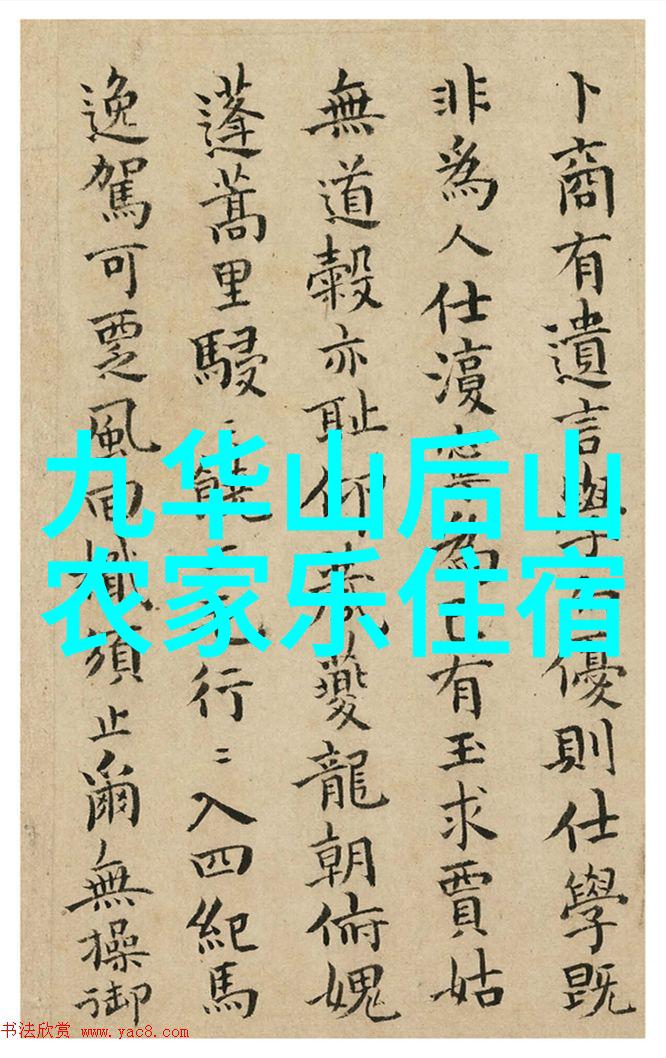 卜商有遺言學優則仕學既
非為人仕為己有玉求賈姑
無道穀亦耻仰夔龍朝俯媿
蓬蒿里駸行〻入四紀馬
逸駕可覂風回須止爾無操御
九华山后山
农家乐住宿
书法欣赏 www.yac8.com